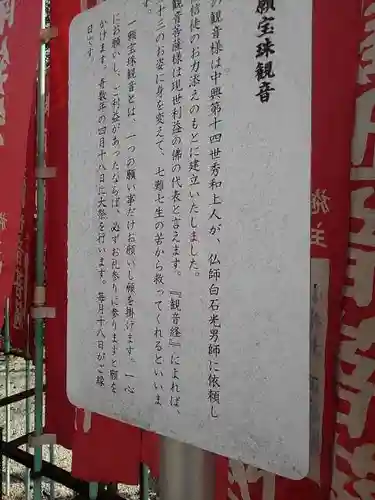 願宝珠観音
の観音様は中興第十四世秀和上人が、仏師白石光男師に依頼し
信徒のお力添えのもとに建立いたしました。
観音菩薩様は現世利益の佛の代表と言えます。『観音経』によれば、
十三のお姿に身を変えて、七難七生の苦から救ってくれるといいま
す。
一願宝珠観音とは、一つの願い事だけお願いし願を掛けます。一心
にお願いし、ご利益があったならば、必ずお礼参りに参りますと願を
かけます。奇数年の四月十八日に大祭を行います。毎月十八日がご縁
日です。
施主